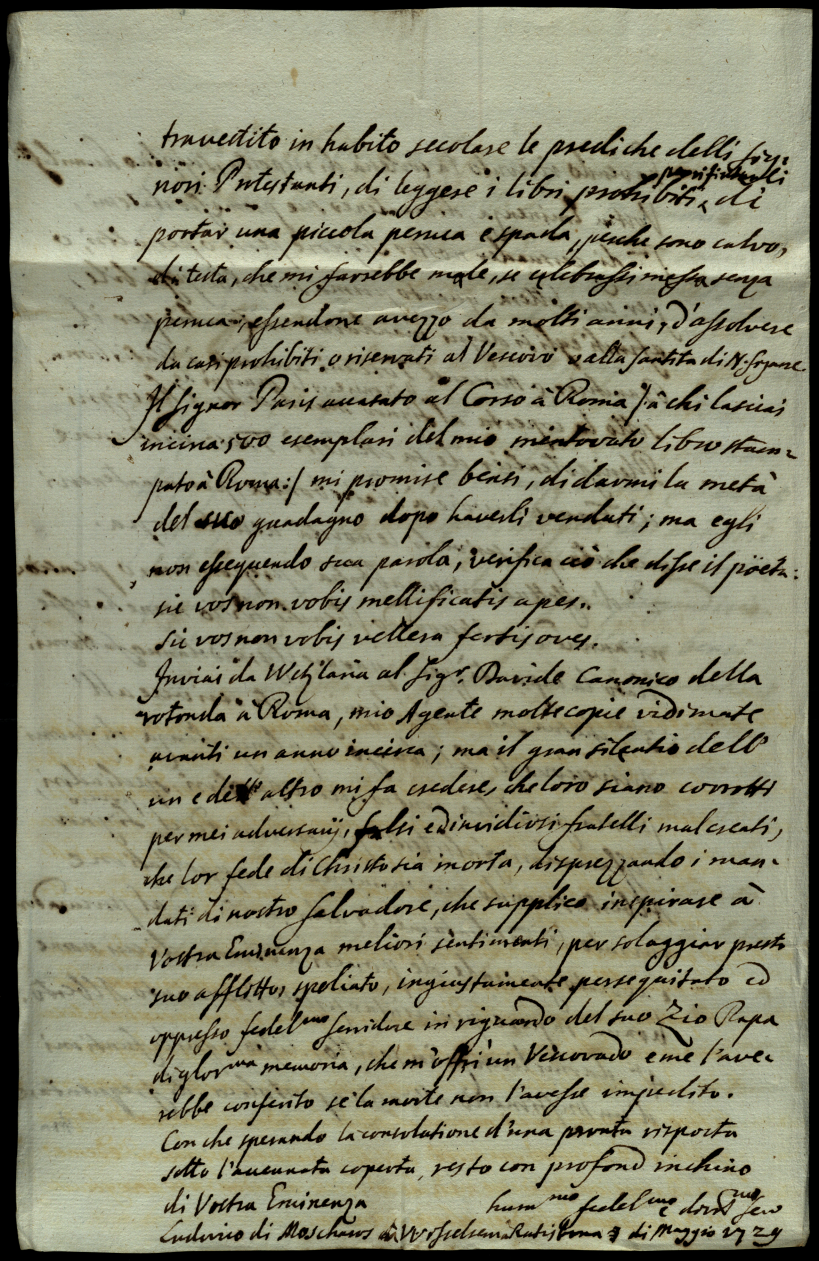 travestito in habito secolare le prediche delli sig:
nori Protestanti, di leggere i libri prohibiti, di
portar una piccola peruca e spada, perche sono calvo,
di testa, che mi farebbe male, se celebrassi messa senza
peruca, essendone avezzo da molti anni, d'assolvere
da casi prohibiti o riservati al Vescovo o alla santita di N. Signore.
Il signor Paris accasato al Corso à Roma /: à chi lasciai
incirca 500 esemplari del mio mentovato libro stam-
pato à Roma :/ mi promise bensi, di darmi la metà
del suo guadagno dopo haverli venduti; ma egli
non essequendo sua parola, verifica ciò che disse il poëta:
sic vos non vobis mellificatis apes.
Sic vos non vobis vellera fertis oves.
Inviai da Wetzlaria al Sigr. Davide Canonico della
rotonda à Roma, mio Agente molte copie vidimate
avanti un anno incirca; ma il gran silentio dell'
un e dell' altro mi fa credere, che loro siano corrotti
per mei adversarij, falsi ed invidiosi fratelli mal creati,
che lor fede di Christo sia morta, disprezzando i man-
dati di nostro Salvadore, che supplico inspirare à
Vostra Eminenza meliori sentimenti, per solaggiar presto
suo afflitto, spoliato, ingiustamente perseguitato ed
oppresso fedelmo servidore in riguardo del suo Zio Papa
di glorma memoria, che m'offrì un Vescovado e me l'ave-
rebbe conferito se la morte non l'avesse impedito.
Con che sperando la consolatione d'una pronta risposta
sotto l'accennata coperta, resto con profond inchino
di Vostra Eminenza hummo fedelmo e devmo serv
Ludovico di Moschaws Ratisbona di Maggio 1729